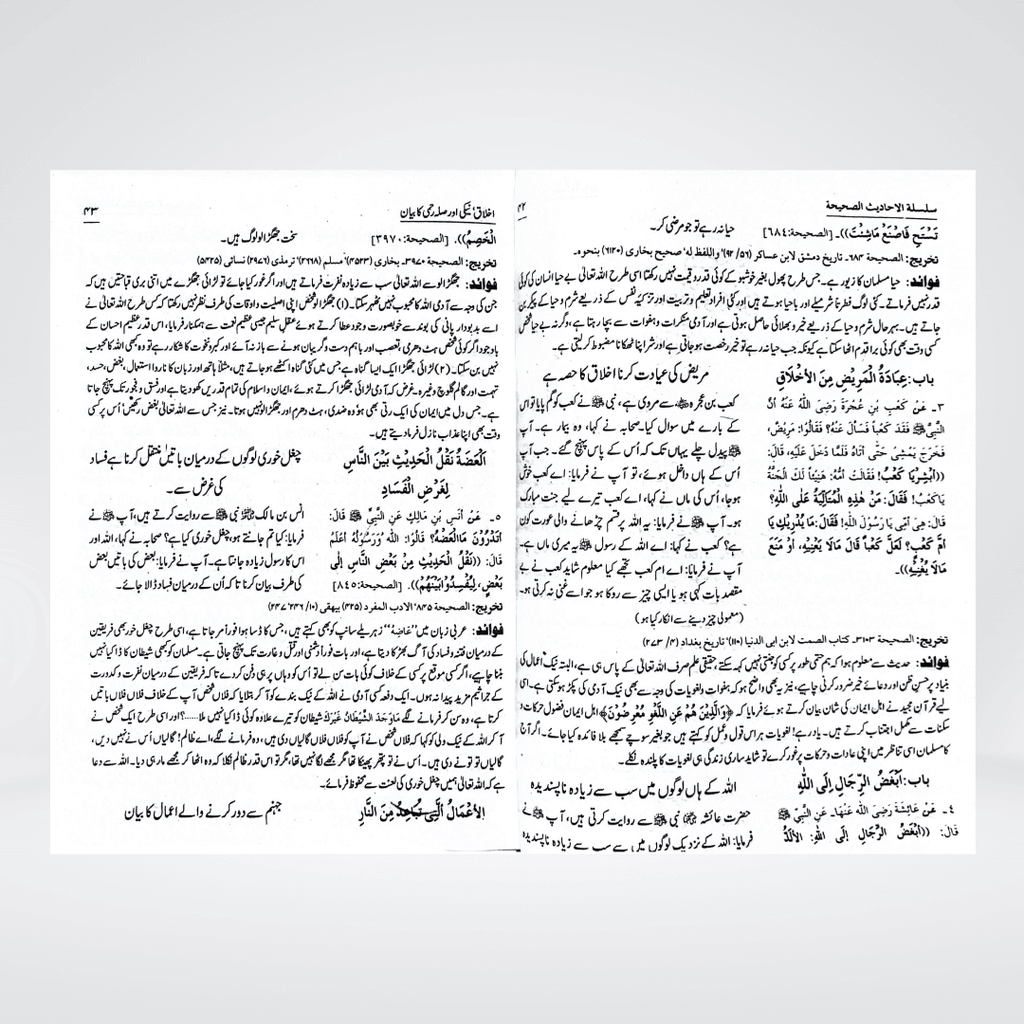 سلسلة الاحادیث الصحیحة ۴۲
تَسْتَحِ فَاصْنَعْ مَاشِئْتَ)). [الصحیحة:۶۸۴] حیا نہ رہے تو جو مرضی کر۔
تخریج: الصحیحة ۶۸۴۔ تاریخ دمشق لابن عساکر (۵۶/ ۹۲) واللفظ له' صحیح بخاری (۶۱۲۰) بنحوه۔
فوائد: حیا مسلمان کا زیور ہے۔ جس طرح پھول بغیر خوشبو کے کوئی قدر وقیمت نہیں رکھتا اسی طرح اللہ تعالی بے حیا انسان کی کوئی
قدر نہیں فرماتے۔ کئی لوگ فطرتاً شرمیلے اور باحیا ہوتے ہیں اور کئی افراد تعلیم و تربیت اور تزکیہ نفس کے ذریعے شرم و حیا کے پیکر بن
جاتے ہیں۔ بہر حال شرم و حیا کے ذریعے خیر و بھلائی حاصل ہوتی ہے اور آدمی منکرات و ہفوات سے بچا رہتا ہے، وگرنہ بے حیا شخص
کسی وقت بھی کوئی برا قدم اٹھا سکتا ہے کیونکہ جب حیا نہ رہے تو خیر رخصت ہو جاتی ہے اور شر اپنا ٹھکانا مضبوط کر لیتی ہے۔
باب: عِيَادَةُ الْمَرِيْضِ مِنَ الْأَخْلَاقِ مریض کی عیادت کرنا اخلاق کا حصہ ہے
۳۔ عَنْ كَعْبِ بْنِ عُجْرَةَ رَضِيَ اللَّهُ عَنْهُ أَنَّ
النَّبِيَّ ﷺ فَقَدَ كَعْباً فَسَأَلَ عَنْهُ؟ فَقَالُوْا: مَرِيْضٌ،
فَخَرَجَ يَمْشِيْ حَتَّى أَتَاهُ فَلَمَّا دَخَلَ عَلَيْهِ، قَالَ:
((أَبْشِرْ يَا كَعْبُ! فَقَالَتْ أُمُّهُ: هَنِيْئاً لَكَ الْجَنَّةُ
يَا كَعْبُ! فَقَالَ: مَنْ هٰذِهِ الْمُتَأَلِّيَةُ عَلَى اللّٰهِ؟
قَالَ: هِيَ أُمِّيْ يَا رَسُوْلَ اللّٰهِ! فَقَالَ: مَا يُدْرِيْكِ يَا
أُمَّ كَعْبٍ؟ لَعَلَّ كَعْباً قَالَ مَالَا يَعْنِيْهِ، أَوْ مَنَعَ
مَالَا يُغْنِيْهِ))۔
کعب بن عجرہ ﷜ سے مروی ہے، نبی ﷺ نے کعب کو گم پایا تو اس
کے بارے میں سوال کیا۔ صحابہ نے کہا، وہ بیمار ہے۔ آپ
ﷺ پیدل چلے یہاں تک کہ اُس کے پاس پہنچ گئے۔ جب آپ
اُس کے ہاں داخل ہوئے، تو آپ نے فرمایا: اے کعب خوش
ہو جا، اُس کی ماں نے کہا، اے کعب تیرے لیے جنت مبارک
ہو۔ آپ ﷺ نے فرمایا: یہ اللہ پر قسم چڑھانے والی عورت کون
ہے؟ کعب نے کہا: اے اللہ کے رسول ﷺ یہ میری ماں ہے۔
آپ نے فرمایا: اے ام کعب تجھے کیا معلوم شاید کعب نے بے
مقصد بات کہی ہو یا ایسی چیز سے روکا ہو جو اسے غنی نہ کرتی ہو۔
(معمولی چیز دینے سے انکار کیا ہو)
تخریج: الصحیحة ۳۱۰۳۔ کتاب الصمت لابن ابی الدنیا (۱۱۰)' تاریخ بغداد (۴/ ۲۷۳)
فوائد: حدیث سے معلوم ہوا کہ ہم حتمی طور پر کسی کو جنتی نہیں کہہ سکتے حقیقی علم صرف اللہ تعالی کے پاس ہی ہے، البتہ نیک اعمال کی
بنیاد پر حسن ظن اور دعائے خیر ضرور کرنی چاہیے، نیز یہ بھی واضح ہو کہ ہفوات و لغویات کی وجہ سے بھی نیک آدمی کی پکڑ ہو سکتی ہے۔ اسی
لیے قرآن مجید نے اہل ایمان کی شان بیان کرتے ہوئے فرمایا کہ ﴿وَالَّذِيْنَ هُمْ عَنِ اللَّغْوِ مُعْرِضُوْنَ﴾ اہل ایمان فضول حرکات و
سکنات سے مکمل اجتناب کرتے ہیں۔ یاد رہے! لغویات ہر اس قول و عمل کو کہتے ہیں جو بغیر سوچے سمجھے بلا فائدہ کیا جائے۔ اگر آج
کا مسلمان اسی تناظر میں اپنی عادات و حرکات پر غور کرے تو شاید ساری زندگی ہی لغویات کا پلندہ نکلے۔
باب: أَبْغَضُ الرِّجَالِ إِلَى اللّٰهِ اللہ کے ہاں لوگوں میں سب سے زیادہ ناپسندیدہ
٤۔ عَنْ عَائِشَةَ رَضِيَ اللَّهُ عَنْهَا۔ عَنِ النَّبِيِّ ﷺ حضرت عائشہ ﷞ نبی ﷺ سے روایت کرتی ہیں، آپ ﷺ نے
قَالَ: ((أَبْغَضُ الرِّجَالِ إِلَى اللّٰهِ: الْأَلَدُّ فرمایا: اللہ کے نزدیک لوگوں میں سے سب سے زیادہ ناپسندیدہ
اخلاق' نیکی اور صلہ رحمی کا بیان ۴۳
الْخَصِمُ)). [الصحیحة:۳۹۷۰] سخت جھگڑالو لوگ ہیں۔
تخریج: الصحیحة ۳۹۷۰۔ بخاری (۴۵۲۳)' مسلم (۲۶۶۸)' ترمذی (۲۹۷۶)' نسائی (۵۴۲۵)
فوائد: جھگڑالو سے اللہ تعالی سب سے زیادہ نفرت فرماتے ہیں اور اگر غور کیا جائے تو لڑائی جھگڑے میں اتنی بری قباحتیں ہیں کہ
جن کی وجہ سے آدمی اللہ کا محبوب نہیں ٹھہر سکتا۔ (۱) جھگڑالو شخص اپنی اصلیت و اوقات کی طرف نظر نہیں رکھتا کہ کس طرح اللہ تعالی نے
اسے بدبودار پانی کی بوند سے خوبصورت وجود عطا کرتے ہوئے عقل سلیم جیسی عظیم نعمت سے ہمکنار فرمایا، اس قدر عظیم احسان کے
باوجود اگر کوئی شخص ہٹ دھرمی، تعصب اور باہم دست و گریبان ہونے سے باز نہ آئے اور کبر و نخوت کا شکار رہے تو وہ کبھی اللہ کا محبوب
نہیں بن سکتا۔ (۲) لڑائی جھگڑا ایک ایسا گناہ ہے جس میں کئی گناہ اکٹھے ہو جاتے ہیں، مثلاً ہاتھ اور زبان کا ناروا استعمال، بغض، حسد،
تہمت اور گالم گلوچ وغیرہ۔ غرض کہ آدمی لڑائی جھگڑا کرتے ہوئے، ایمان و اسلام کی تمام قدریں کھو دیتا ہے اور فسق و فجور تک پہنچ جاتا
ہے۔ جس دل میں ایمان کی ایک رتی بھی ہو وہ ضدی، ہٹ دھرم اور جھگڑالو نہیں ہوتا۔ نیز جس سے اللہ تعالی بغض رکھیں' اُس پر کسی
وقت بھی اپنا عذاب نازل فرما دیتے ہیں۔
اَلْعَضَةُ نَقْلُ الْحَدِيْثِ بَيْنَ النَّاسِ چغل خوری لوگوں کے درمیان باتیں منتقل کرنا ہے فساد
لِغَرْضِ الْفَسَادِ کی غرض سے۔
۵۔ عَنْ أَنَسِ بْنِ مَالِكٍ عَنِ النَّبِيِّ ﷺ قَالَ: انس بن مالک ﷜ نبی ﷺ سے روایت کرتے ہیں، آپ ﷺ نے
أَتَدْرُوْنَ مَا الْعَضْهُ؟ قَالُوْا: اللّٰهُ وَرَسُوْلُهُ أَعْلَمُ فرمایا: کیا تم جانتے ہو، چغل خوری کیا ہے؟ صحابہ نے کہا، اللہ اور
قَالَ: ((نَقْلُ الْحَدِيْثِ مِنْ بَعْضِ النَّاسِ إِلٰى اس کا رسول زیادہ جانتا ہے۔ آپ نے فرمایا: بعض کی باتیں بعض
بَعْضٍ، لِيُفْسِدُوْا بَيْنَهُمْ)). [الصحیحة:۸۴۵] کی طرف بیان کرنا تا کہ اُن کے درمیان فساد ڈالا جائے۔
تخریج: الصحیحة ۸۴۵' الادب المفرد (۴۲۵)' بیهقی (۱۰/ ۲۴۶' ۲۴۷)
فوائد: عربی زبان میں ''عَاضِهٌ'' زہریلے سانپ کو بھی کہتے ہیں، جس کا ڈسا ہوا فوراً مر جاتا ہے، اسی طرح چغل خور بھی فریقین
کے درمیان فتنہ و فساد کی آگ بھڑکا دیتا ہے، اور بات فوراً دشمنی اور قتل و غارت تک پہنچ جاتی ہے۔ مسلمان کو کبھی شیطان کا ڈاکیا نہیں
بننا چاہیے، اگر کسی موقع پر کسی کے خلاف کوئی بات سن لے تو اُس کو وہاں پر ہی دفن کر دے تا کہ فریقین کے درمیان نفرت و کدورت
کے جراثیم مزید پیدا نہ ہوں۔ ایک دفعہ کسی آدمی نے اللہ کے نیک بندے کو آ کر بتلایا کہ فلاں شخص آپ کے خلاف فلاں فلاں باتیں
کرتا ہے، وہ سن کر فرمانے لگے مَا وَجَدَ الشَّيْطَانُ غَيْرَكَ شیطان کو تیرے علاوہ کوئی ڈاکیا نہیں ملا......؟ اور اسی طرح ایک شخص نے
آ کر اللہ کے نیک ولی کو کہا کہ فلاں شخص نے آپ کو فلاں فلاں گالیاں دی ہیں، وہ فرمانے لگے، اے ظالم! گالیاں اُس نے نہیں دیں،
گالیاں تو تو نے دی ہیں۔ اُس نے تو پتھر پھینکا تھا مگر مجھے لگا نہیں تھا، مگر تو اس قدر ظالم نکلا کہ وہ اٹھا کر مجھے مار ہی دیا۔ اللہ سے دعا
ہے کہ اللہ تعالی ہمیں چغل خوری کی لعنت سے محفوظ فرمائے۔
اَلْأَعْمَالُ الَّتِيْ تُبَاعِدُ مِنَ النَّارِ جہنم سے دور کرنے والے اعمال کا بیان